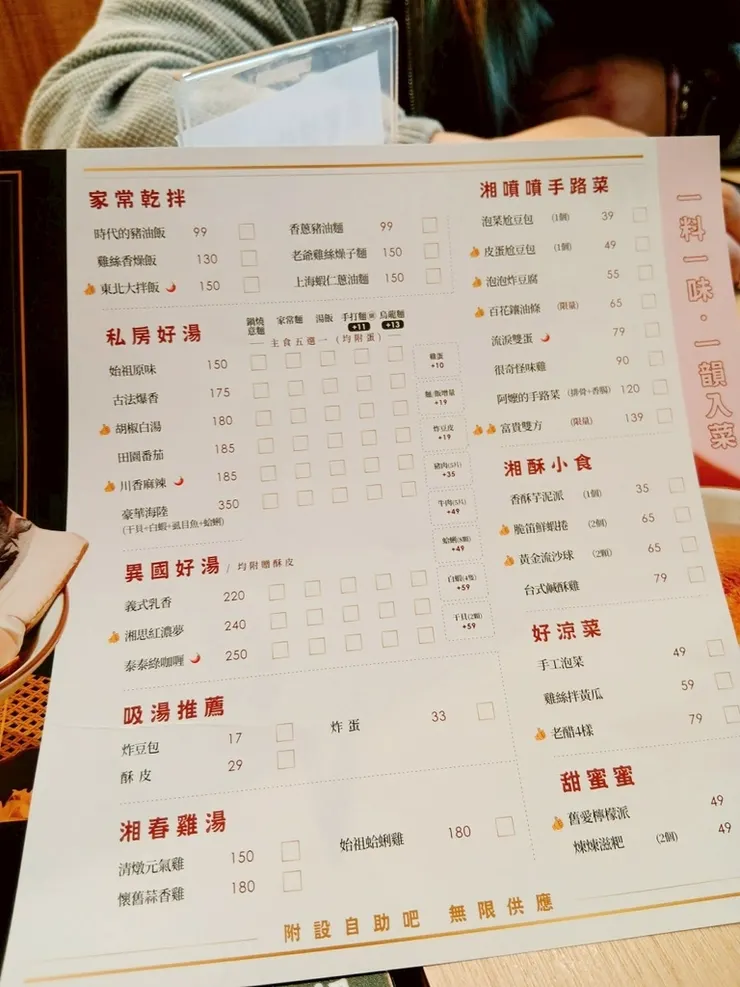 家常乾拌
時代的豬油飯 99
雞絲香燥飯 130
東北大拌飯 150
香蔥豬油麵 99
老爺雞絲燥子麵 150
上海蝦仁蔥油麵 150
私房好湯
鍋燒意麵 家常麵 湯飯 手打麵 +11 烏龍麵 +13
主食五選一 (均附蛋)
始祖原味 150
古法爆香 175
胡椒白湯 180
田園番茄 185
川香麻辣 185
豪華海陸 350
(干貝+白蝦+虱目魚+蛤蜊)
雞蛋 +10
麵/飯增量 +19
炸豆皮 +19
豬肉(5片) +35
牛肉(5片) +49
蛤蜊(8顆) +49
白蝦(4隻) +59
干貝(2顆) +59
異國好湯 / 均附贈酥皮
義式乳香 220
湘思紅濃夢 240
泰泰綠咖喱 250
吸湯推薦
炸豆包 17
酥皮 29
炸蛋 33
湘春雞湯
清燉元氣雞 150
懷舊蒜香雞 180
始祖蛤蜊雞 180
湘噴噴手路菜
泡菜尬豆包 (1個) 39
皮蛋尬豆包 (1個) 49
泡泡炸豆腐 55
百花鑲油條 (限量) 65
流淚雙蛋 79
很奇怪味雞 90
阿嬤的手路菜 (排骨+香腸) 120
富貴雙方 (限量) 139
湘酥小食
香酥芋泥派 (1個) 35
脆笛鮮蝦捲 (2個) 65
黃金流沙球 (2顆) 65
台式鹹酥雞 79
好涼菜
手工泡菜 49
雞絲拌黃瓜 59
老醋4樣 79
甜蜜蜜
舊愛檸檬派 49
煉煉滋粑 (2個) 49
附設自助吧 無限供應
一料一味·一韻入菜